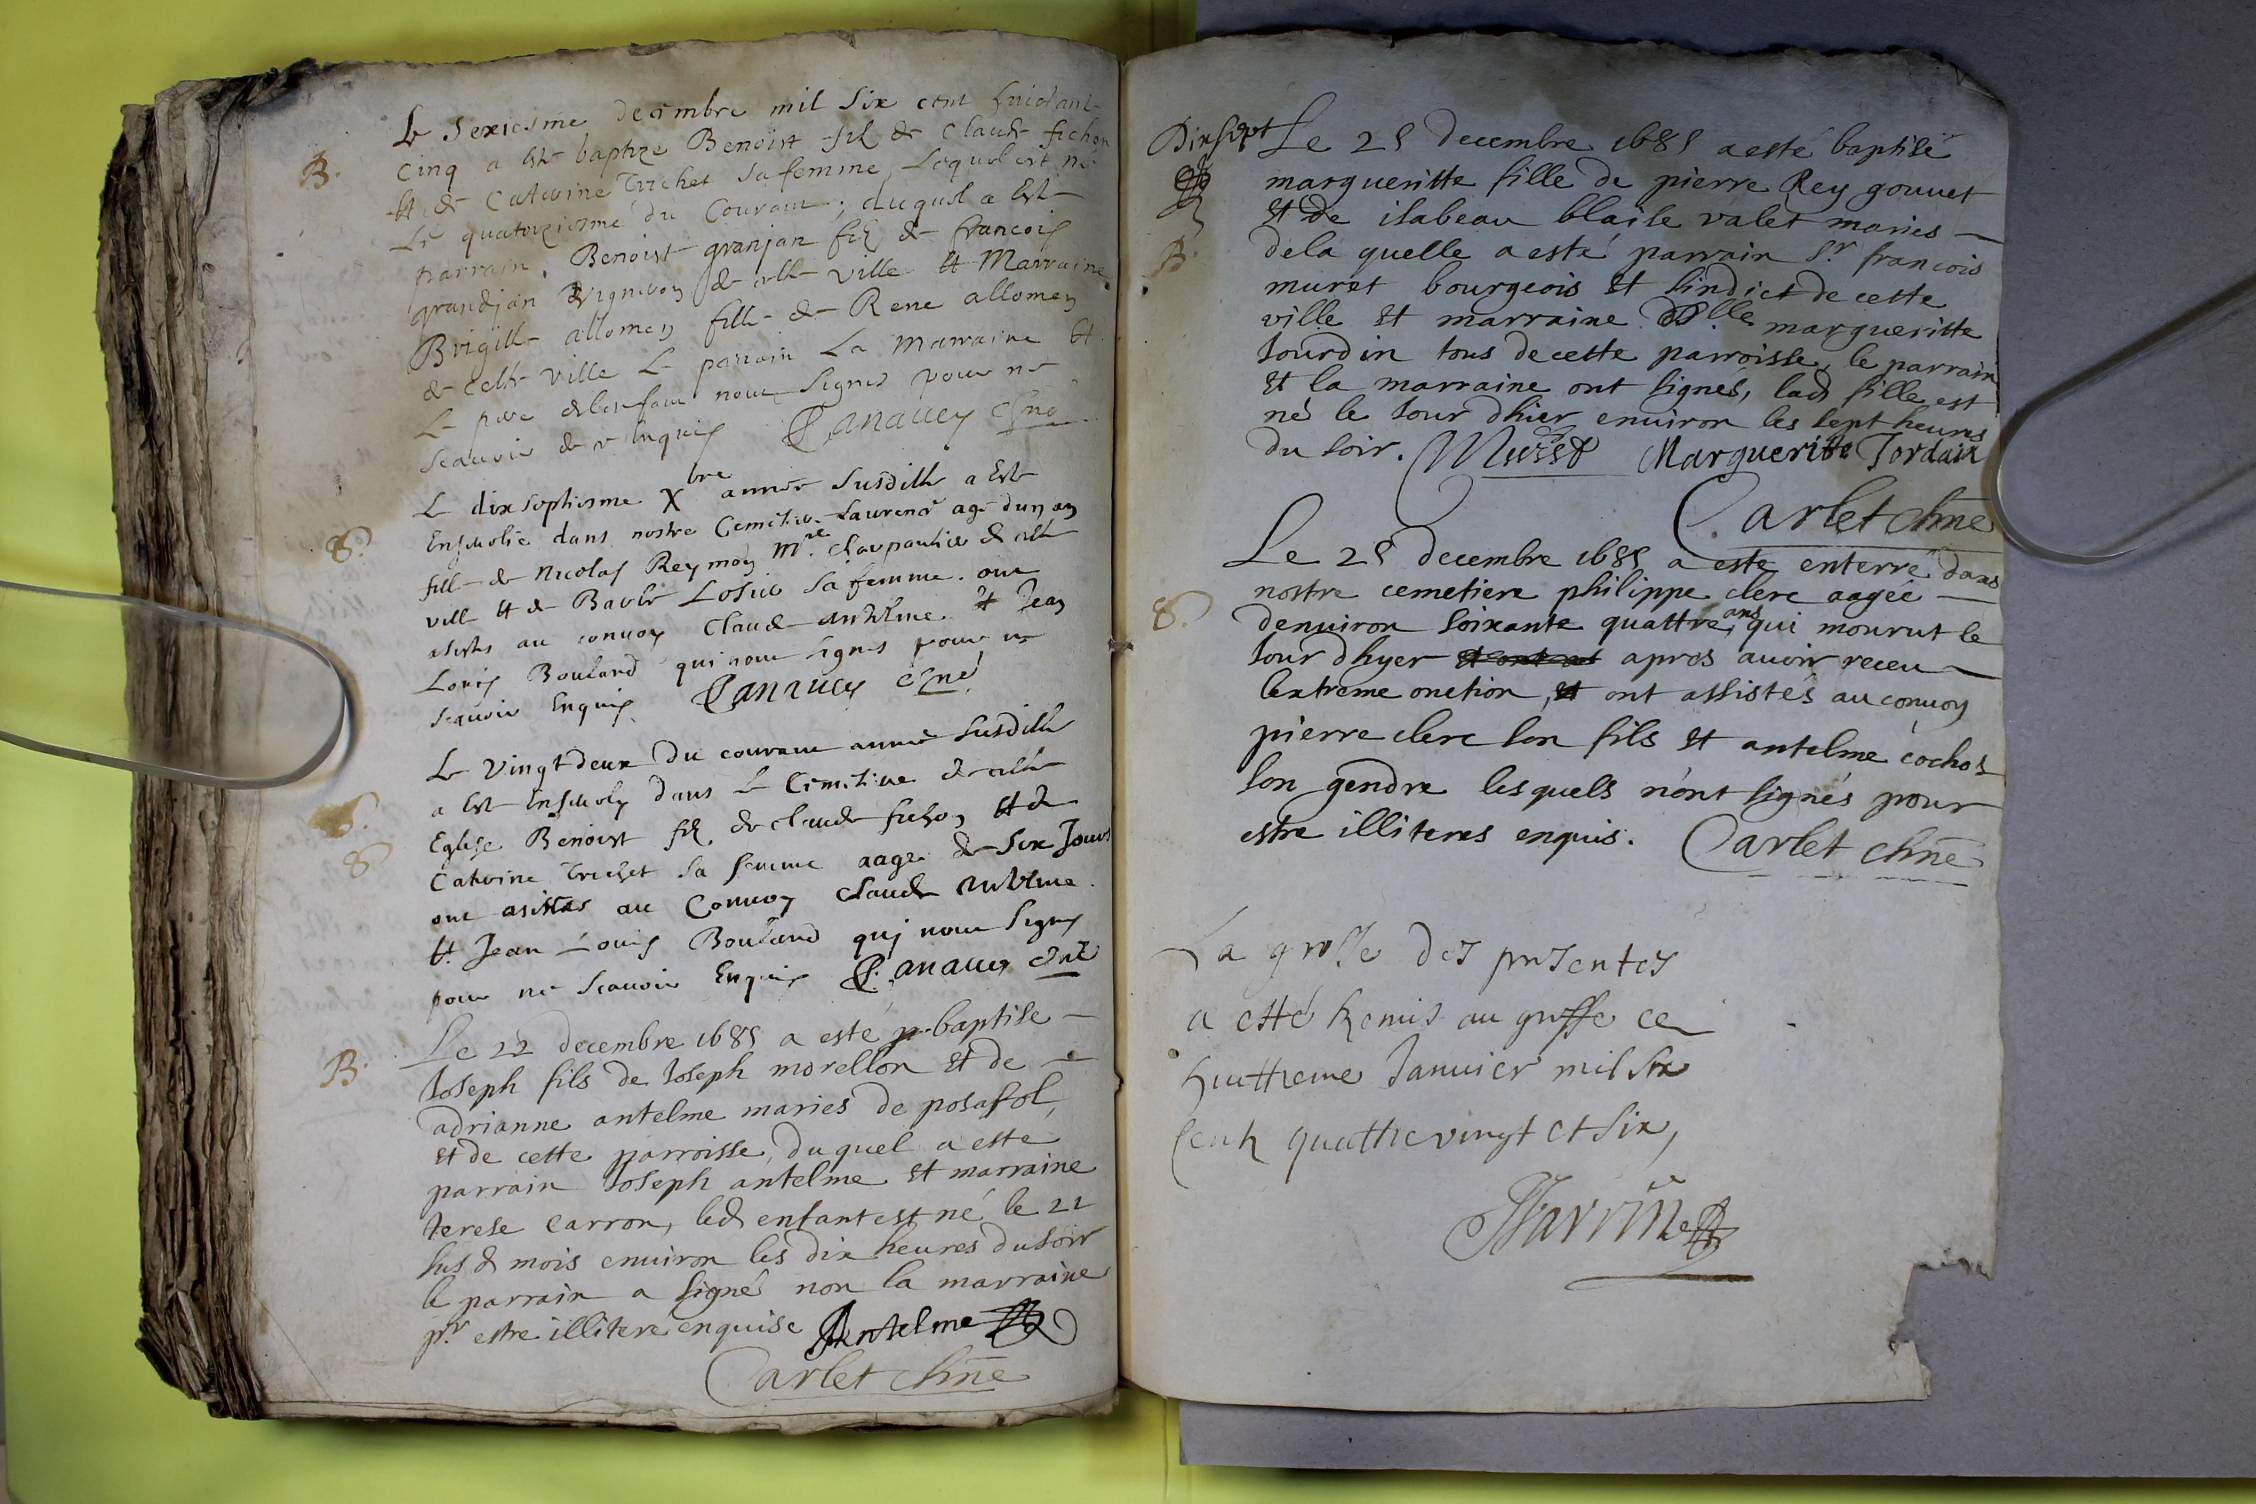 B.
Le sexiesme decembre mil six cent huictante
cinq a este baptize Benoist fil de Claude fichon
et de Caterine Trichet sa femme Lequel est né
Le quatorziesme du Courant, duquel a este
parrain, Benoist granjan fils de francois
grandjan Vigneron de cette ville et Marraine
Brigitte allomen fille de Rene allomen
de cette ville Le parrain La marraine et
Le pere de lenfant nont signes pour ne
scavoir de ce Enquis P. anauey chne
8.
Le dixseptiesme Xbre année susditte a este
Ensevelie dans nostre Cemetiere Laurence agé dun an
fille de Nicolas Reymon mre charpantier de cette
ville et de Barbe Losier sa femme. ont
asistes au convoy Claude antelme et Jean
Louis Bouland qui nont signes pour ne
scavoir Enquis P anauey chne
8.
8
Le vingtdeux du courant année susditte
a este Ensevely dans le Cimetiere de cette
Eglise Benoist fils de claude fichon et de
Caterine Trichet sa femme aage de six Jours
ont asistes au Convoy Claude antelme
et Jean Louis Bouland qui nont signes
pour ne scavoir Enquis P. anauey chne
B.
Le 22 decembre 1685 a esté baptise
Ioseph fils de Ioseph morellon et de
adrianne antelme maries de posafol,
et de cette parroisse, duquel a este
parrain Ioseph antelme et marraine
terese Carron, led enfant est né le 22
susd mois environ les dix heures du soir
le parrain a signé non la marraine
pr estre illitere enquise Antelme
Carlet chne
Dixsept
B.
Le 25 decembre 1685 a esté baptisé
margueritte fille de pierre Rey gouuet
et de isabeau blaise valet maries
dela quelle a esté parrain Sr francois
muret bourgeois et sindict de cette
ville et marraine Dlle margueritte
Iourdin tous de cette parroisse, le parrain
et la marraine ont signés, lad fille est
né le Iour dhier environ les sept heures
du soir. Muret Marguerite Jordain
Carlet chne
8.
Le 25 decembre 1685 a este enterré dans
nostre cemetiere philippe clerc aagée
denviron soixante quattre ans qui mourut le
Iour dhyer apres avoir receu
lextreme onction, et ont assistés au convoy
pierre clerc son fils et antelme cochos
son gendre lesquels n'ont signés pour
estre illiteres enquis. Carlet chne
La grosse des presentes
a etté Remis au greffe ce
huittieme Janvier mil six
Cent quattre vingt et six,